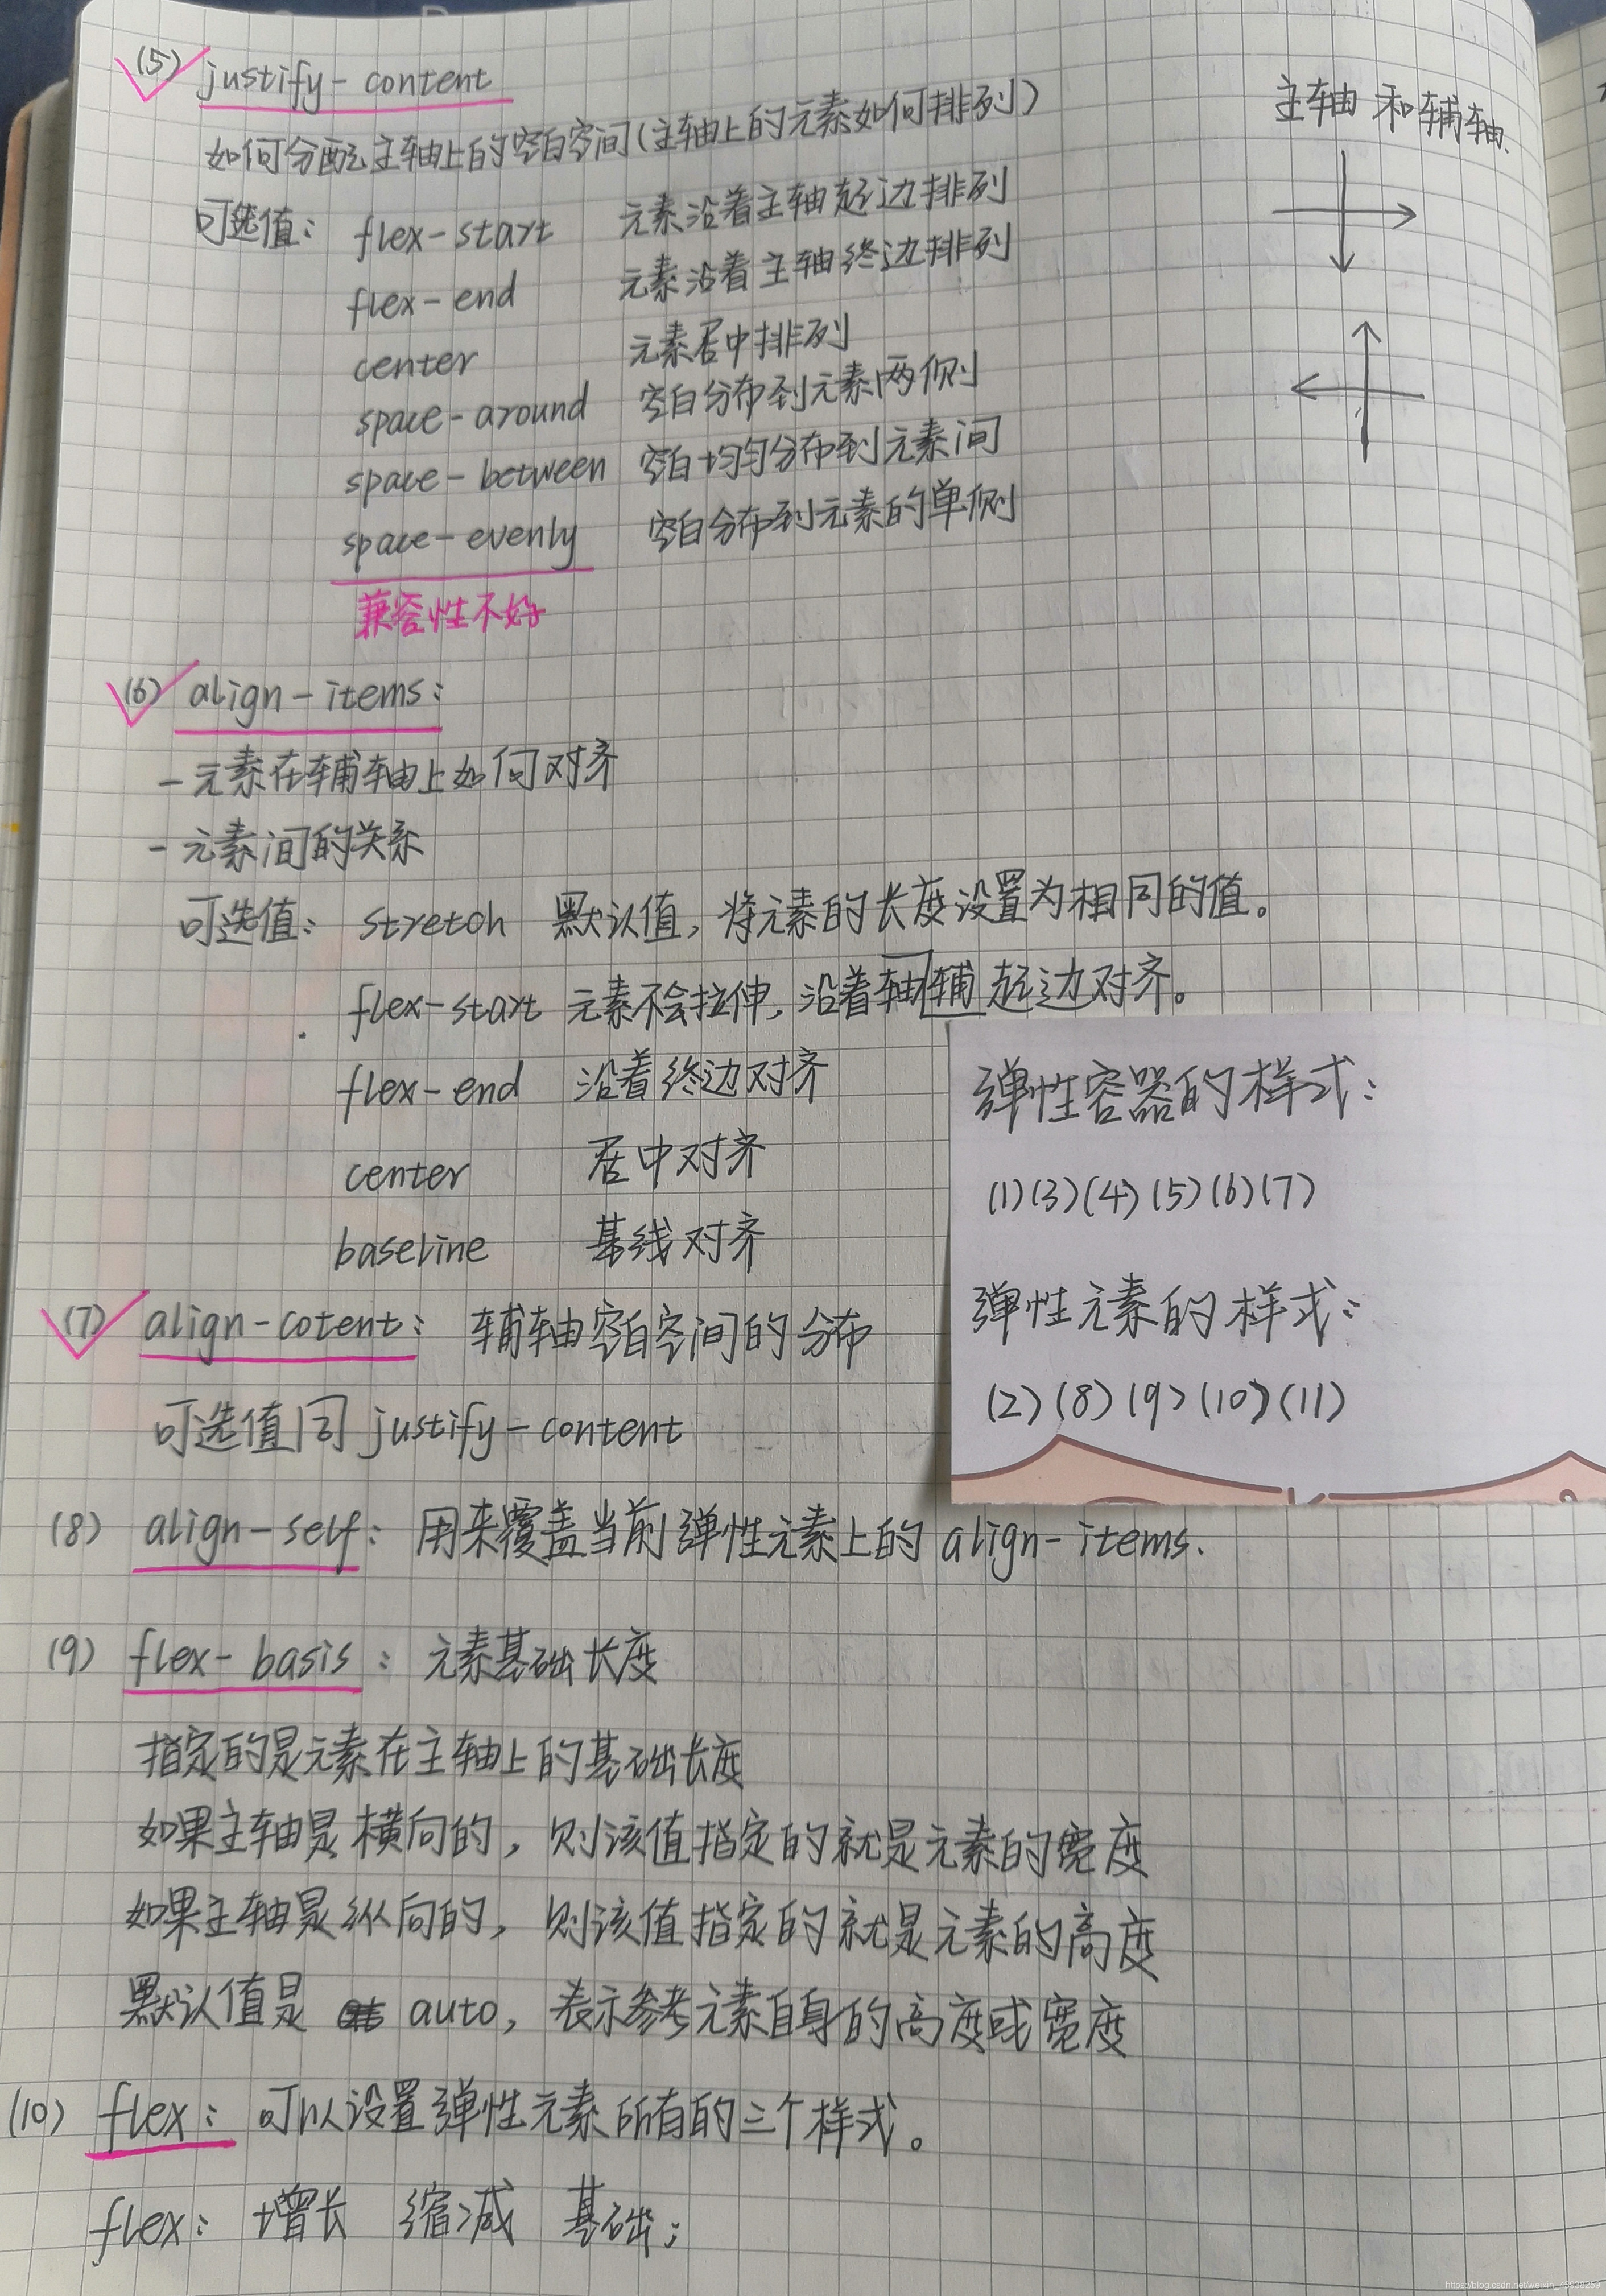 (5) justify-content
如何分配主轴上的空白空间(主轴上的元素如何排列)
可选值: flex-start 元素沿着主轴起边排列
flex-end 元素沿着主轴终边排列
center 元素居中排列
space-around 空白分布到元素两侧
space-between 空白均匀分布到元素间
space-evenly 空白分布到元素的单侧
兼容性不好
主轴和辅轴.
(6) align-items:
-元素在辅轴上如何对齐
-元素间的关系
可选值: stretch 默认值,将元素的长度设置为相同的值。
flex-start 元素不会拉伸,沿着轴辅起边对齐。
flex-end 沿着终边对齐
center 居中对齐
baseline 基线对齐
(7) align-cotent: 辅轴空白空间的分布
可选值同 justify-content
弹性容器的样式:
(1)(3)(4)(5)(6)(7)
弹性元素的样式:
(2)(8)(9)(10)(11)
(8) align-self: 用来覆盖当前弹性元素上的 align-items.
(9) flex-basis: 元素基础长度
指定的是元素在主轴上的基础长度
如果主轴是横向的,则该值指定的就是元素的宽度
如果主轴是纵向的,则该值指定的就是元素的高度
默认值是 auto,表示参考元素自身的高度或宽度
(10) flex: 可以设置弹性元素所有的三个样式。
flex: 增长 缩减 基础;